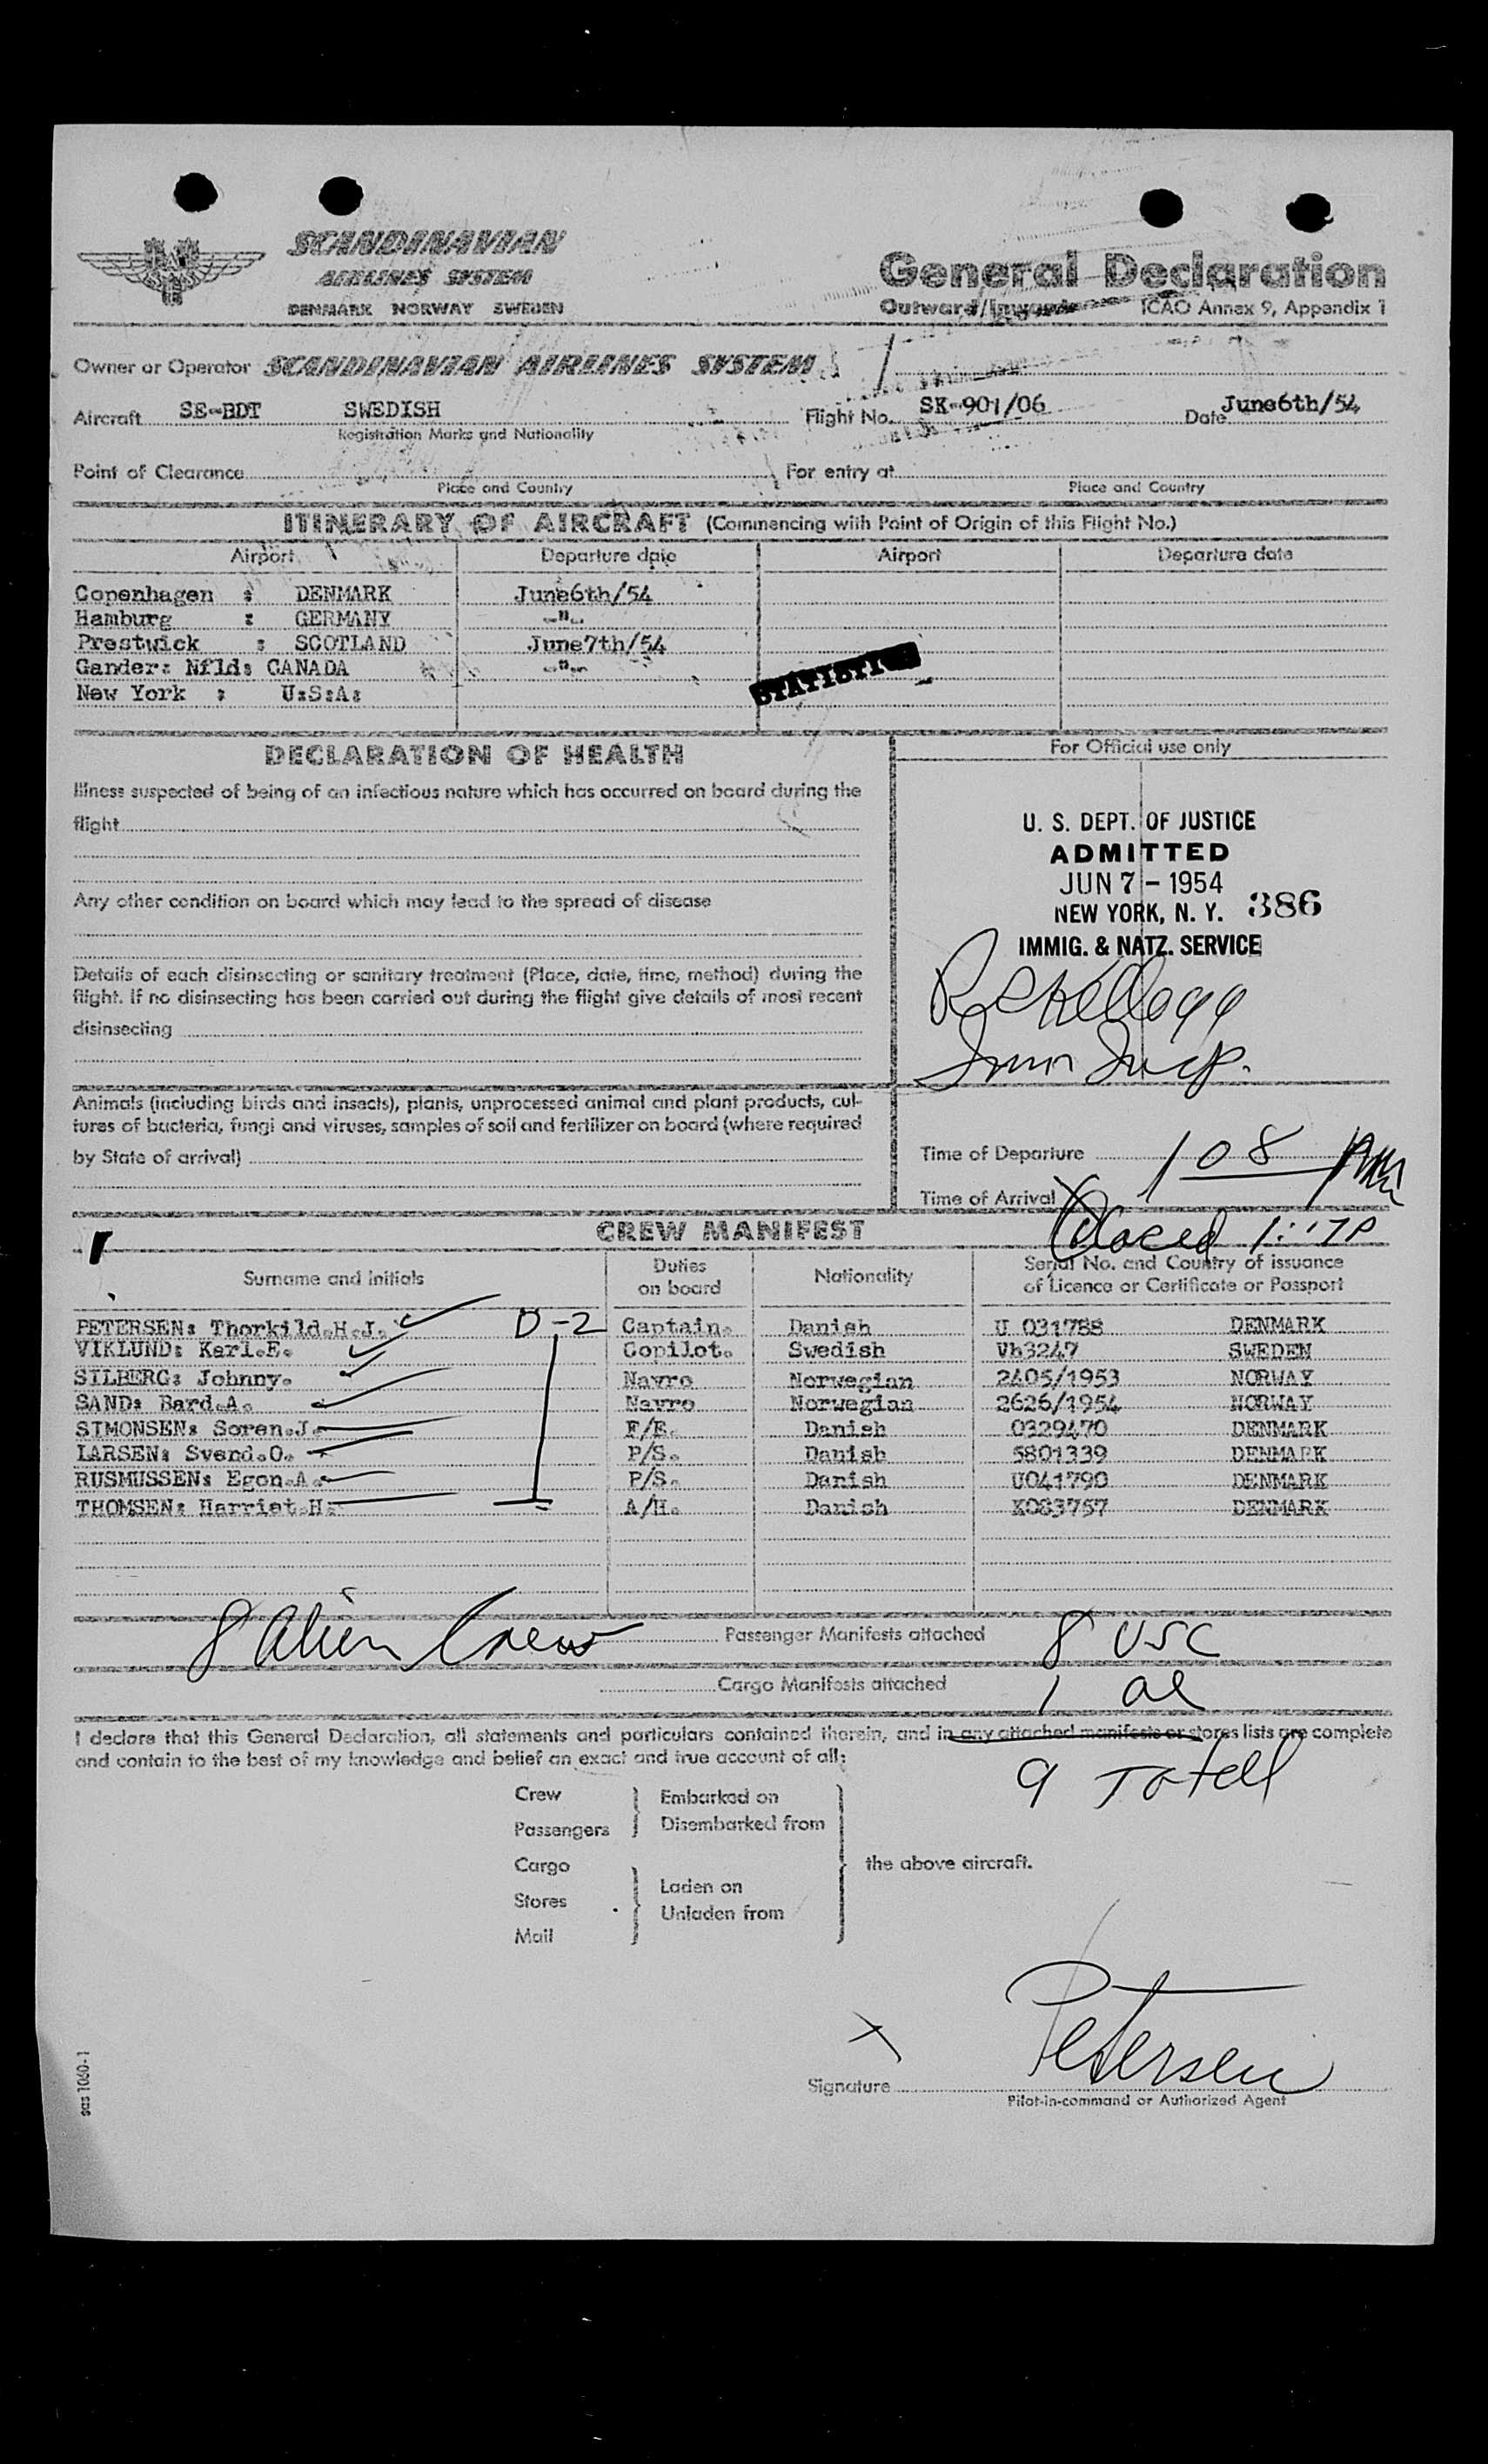 SCANDINAVIAN
AIRLINES SYSTEM
DENMARK NORWAY SWEDEN
General Declaration
Outward/Inwards ICAO Annex 9, Appendix 1
Owner or Operator SCANDINAVIAN AIRLINES SYSTEM
Aircraft SE-BDT SWEDISH Flight No. SK-901/06 Date June6th/54
Registration Marks and Nationality
Point of Clearance For entry at
Place and Country Place and Country
ITINERARY OF AIRCRAFT (Commencing with Point of Origin of this Flight No.)
Airport Departure date Airport Departure date
Copenhagen : DENMARK June6th/54
Hamburg : GERMANY -"-
Prestwick : SCOTLAND June7th/54
Gander: Nfld: CANADA -"-
New York : U:S:A:
DECLARATION OF HEALTH
Illness suspected of being of an infectious nature which has occurred on board during the
flight
Any other condition on board which may lead to the spread of disease
Details of each disinsecting or sanitary treatment (Place, date, time, method) during the
flight. If no disinsecting has been carried out during the flight give details of most recent
disinsecting
Animals (including birds and insects), plants, unprocessed animal and plant products, cul-
tures of bacteria, fungi and viruses, samples of soil and fertilizer on board (where required
by State of arrival)
For Official use only
U. S. DEPT. OF JUSTICE
ADMITTED
JUN 7 - 1954
NEW YORK, N. Y. 386
IMMIG. & NATZ. SERVICE
R C Kellogg
Imm Insp.
Time of Departure 1 08 pm
Time of Arrival
CREW MANIFEST
Surname and initials Duties on board Nationality Serial No. and Country of issuance of Licence or Certificate or Passport
PETERSEN: Thorkild.H.J. D-2 Captain. Danish U 031788 DENMARK
VIKLUND: Karl.E. Copilot. Swedish Vh3247 SWEDEN
SILBERG: Johnny. Navro Norwegian 2405/1953 NORWAY
SAND: Bard.A. Navro Norwegian 2626/1954 NORWAY
SIMONSEN: Soren.J. F/E. Danish 0329470 DENMARK
LARSEN: Svend.O. P/S. Danish 5801339 DENMARK
RUSMUSSEN: Egon.A. P/S. Danish U041790 DENMARK
THOMSEN: Harriet.H. A/H. Danish K083757 DENMARK
8 Alien Crew Passenger Manifests attached 8 USC
Cargo Manifests attached 1 al
I declare that this General Declaration, all statements and particulars contained therein, and in any attached manifests or stores lists are complete
and contain to the best of my knowledge and belief an exact and true account of all:
9 Totell
Crew Embarked on
Passengers Disembarked from
Cargo the above aircraft.
Laden on
Stores
Unladen from
Mail
X Petersen
Signature
Pilot-in-command or Authorized Agent
sas 1060-1